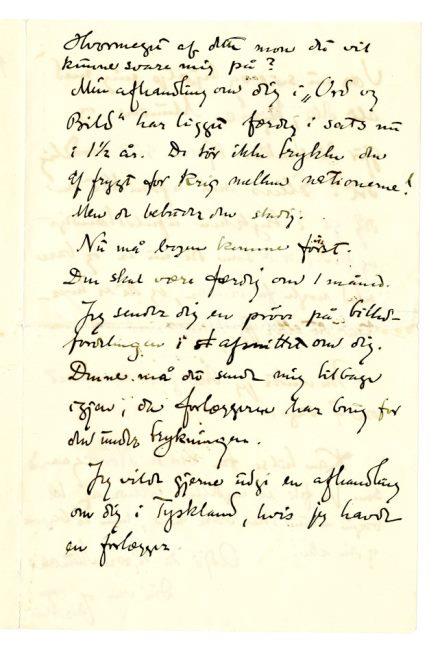 Hvormeget af dette mon du vil
kunne svare mig på?
Min afhandling om dig i "Ord og
Bild" har ligget færdig i sats nu
i 1½ år. De tör ikke trykke den
af frygt for krig mellem nationerne!
Men de bebuder den stadig.
Nu må bogen komme först.
Den skal være færdig om 1 måned.
Jeg sender dig en pröve på billed-
fordelingen i et afsnittet om dig.
Denne må du sende mig tilbage
igjen, da forlæggeren har brug for
den under trykningen.
Jeg vilde gjerne udgi en afhandling
om dig i Tyskland, hvis jeg havde
en forlægger.